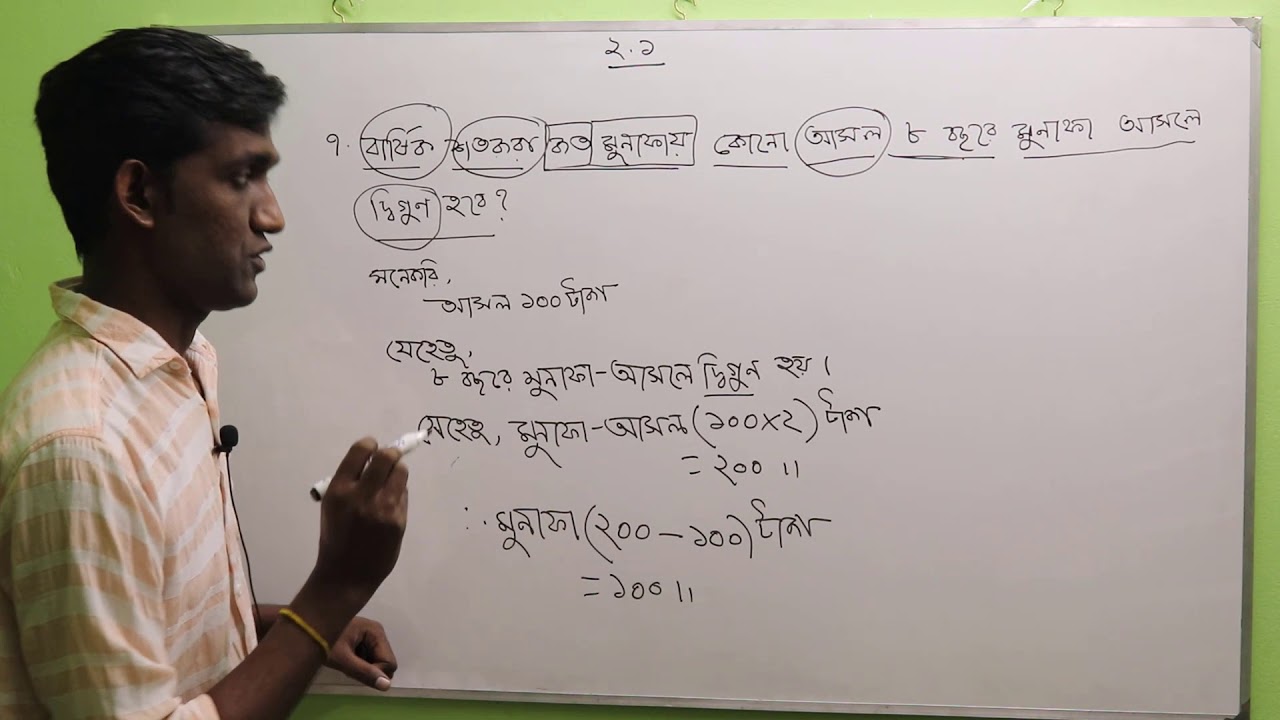 ২.১
৭. বার্ষিক শতকরা কত মুনাফায় কোনো আসল ৮ বছরে মুনাফা আসলে
দ্বিগুন হবে?
মনেকরি,
আসল ১০০ টাকা
যেহেতু,
৮ বছরে মুনাফা-আসলে দ্বিগুন হয়।
যেহেতু, মুনাফা-আসল (১০০×২) টাকা
= ২০০ ॥
∴ মুনাফা (২০০ – ১০০) টাকা
= ১০০ ॥